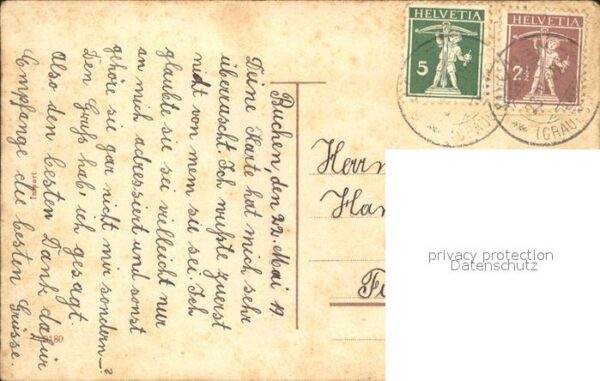 Buchen, den 22. Mai 19
Deine Karte hat mich sehr
überrascht. Ich wußte zuerst
nicht von wem sie sei. Ich
glaubte sie sei vielleicht nur
an mich adressiert und sonst
gehöre sie gar nicht mir sondern –?
Den Gruß hab' ich gesagt.
Also den besten Dank dafür
Empfange die besten Grüsse.
Import
HELVETIA
5
HELVETIA
2½
(GRAU
Herrn
privacy protection
Datenschutz